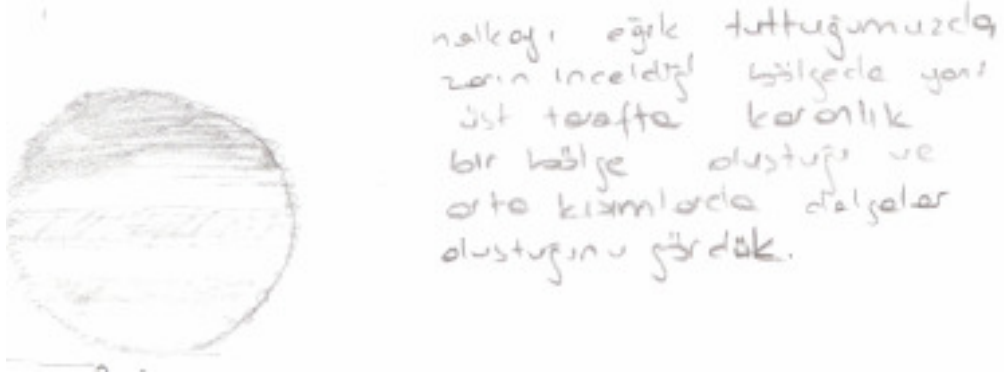 halkayı eğik tuttuğumuzda
zarın inceldiği bölgede yani
üst tarafta karanlık
bir bölge oluştuğu ve
orta kısımlarda dalgalar
oluştuğunu gördük.